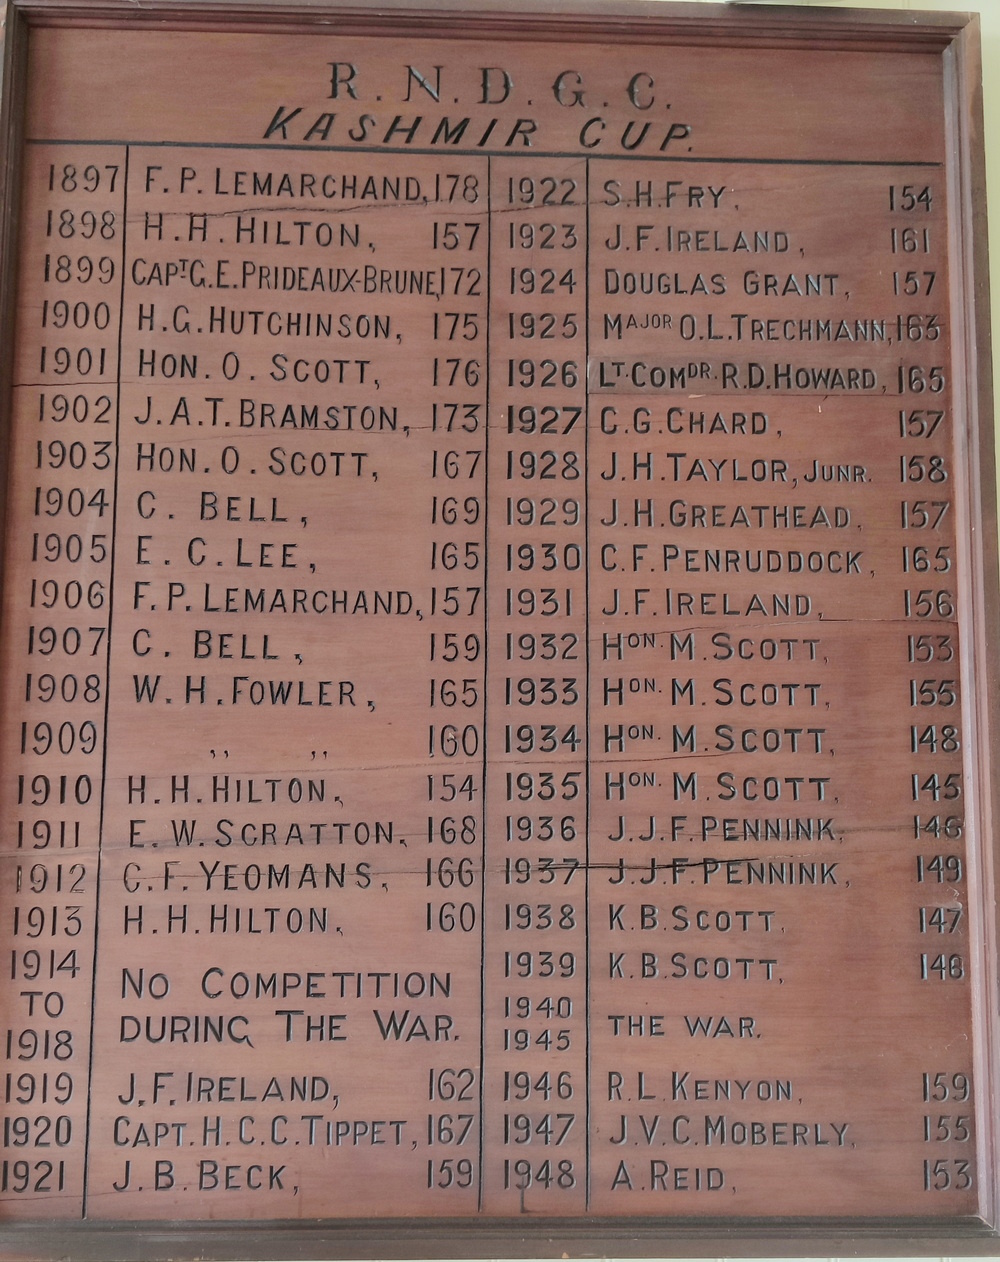 R.N.D.G.C.
KASHMIR CUP.
1897 F.P. LEMARCHAND, 178
1898 H.H. HILTON, 157
1899 CAPT G.E. PRIDEAUX-BRUNE, 172
1900 H.G. HUTCHINSON, 175
1901 HON. O. SCOTT, 176
1902 J.A.T. BRAMSTON, 173
1903 HON. O. SCOTT, 167
1904 C. BELL, 169
1905 E. C. LEE, 165
1906 F.P. LEMARCHAND, 157
1907 C. BELL, 159
1908 W.H. FOWLER, 165
1909 ,, ,, 160
1910 H.H. HILTON, 154
1911 E.W. SCRATTON, 168
1912 C.F. YEOMANS, 166
1913 H.H. HILTON, 160
1914
TO
1918
NO COMPETITION
DURING THE WAR.
1919 J.F. IRELAND, 162
1920 CAPT. H.C.C. TIPPET, 167
1921 J.B. BECK, 159
1922 S.H. FRY, 154
1923 J.F. IRELAND, 161
1924 DOUGLAS GRANT, 157
1925 MAJOR O.L. TRECHMANN, 163
1926 LT. COMDR. R.D. HOWARD, 165
1927 C.G. CHARD, 157
1928 J.H. TAYLOR, JUNR. 158
1929 J.H. GREATHEAD, 157
1930 C.F. PENRUDDOCK, 165
1931 J.F. IRELAND, 156
1932 HON. M. SCOTT, 153
1933 HON. M. SCOTT, 155
1934 HON. M. SCOTT, 148
1935 HON. M. SCOTT, 145
1936 J.J.F. PENNINK, 146
1937 J.J.F. PENNINK, 149
1938 K.B. SCOTT, 147
1939 K.B. SCOTT,
1940
1945
THE WAR.
1946 R.L. KENYON, 159
1947 J.V.C. MOBERLY, 155
1948 A. REID, 153